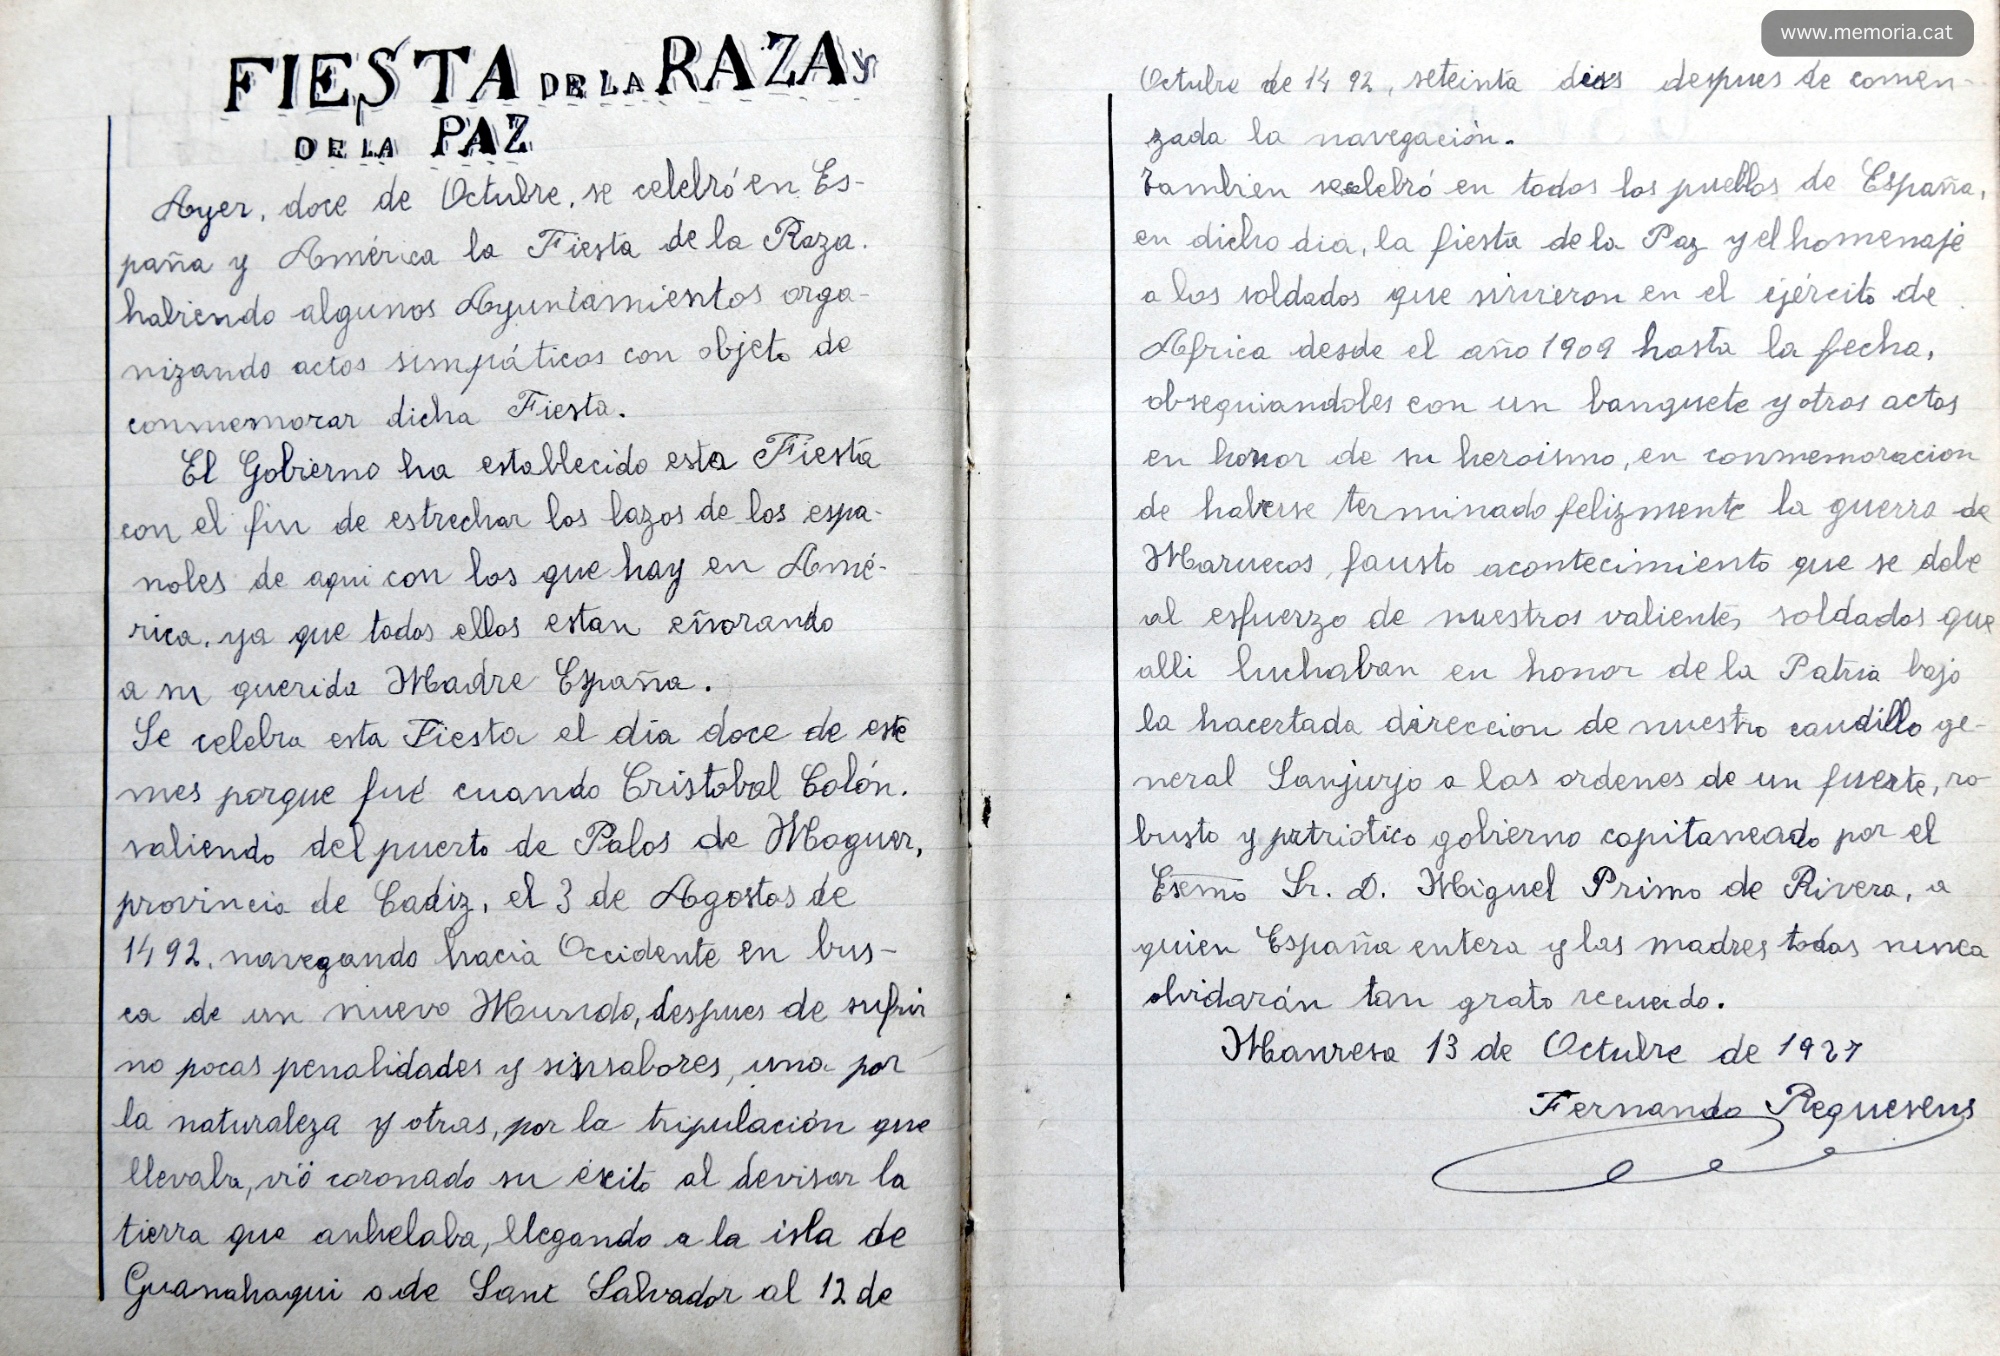 FIESTA DE LA RAZA Y
DE LA PAZ
Ayer, doce de Octubre, se celebró en Es-
paña y América la Fiesta de la Raza.
habiendo algunos Ayuntamientos orga-
nizando actos simpáticos con objeto de
conmemorar dicha Fiesta.
El Gobierno ha establecido esta Fiesta
con el fin de estrechar los lazos de los espa-
noles de aqui con los que hay en Amé-
rica, ya que todos ellos estan eñorando
a su querida Madre España.
Se celebra esta Fiesta el día doce de este
mes porque fué cuando Cristobal Colón.
saliendo del puerto de Palos de Moguer,
provincia de Cadiz, el 3 de Agostos de
1492, navegando hacia Occidente en bus-
ca de un nuevo Mundo, despues de sufrir
no pocas penalidades y sinsabores, una por
la naturaleza y otras, por la tripulación que
llevaba, vió coronado su éxito al devisar la
tierra que anhelaba, llegando a la isla de
Guanahaqui o de Sant Salvador al 12 de
www.memoria.cat
Octubre de 1492, seteinta dias despues de comen-
zada la navegación.
Tambien se celebró en todos los pueblos de España,
en dicho dia, la fiesta de la Paz y el homenaje
a los soldados que sirvieron en el ejército de
Africa desde el año 1909 hasta la fecha,
obsequiandoles con un banquete y otros actos
en honor de su heroismo, en conmemoracion
de haberse terminado felizmente la guerra de
Maruecos, fausto acontecimiento que se debe
al esfuerzo de nuestros valientes soldados que
alli luchaban en honor de la Patria bajo
la hacertada direccion de nuestro caudillo ge-
neral Sanjurjo a las ordenes de un fuerte, ro-
busto y patriotico gobierno capitaneado por el
Esemo Sr. D. Miguel Primo de Rivera, a
quien España entera y las madres todas nunca
olvidarán tan grato recuerdo.
Manresa 13 de Octubre de 1927
Fernando Requesens